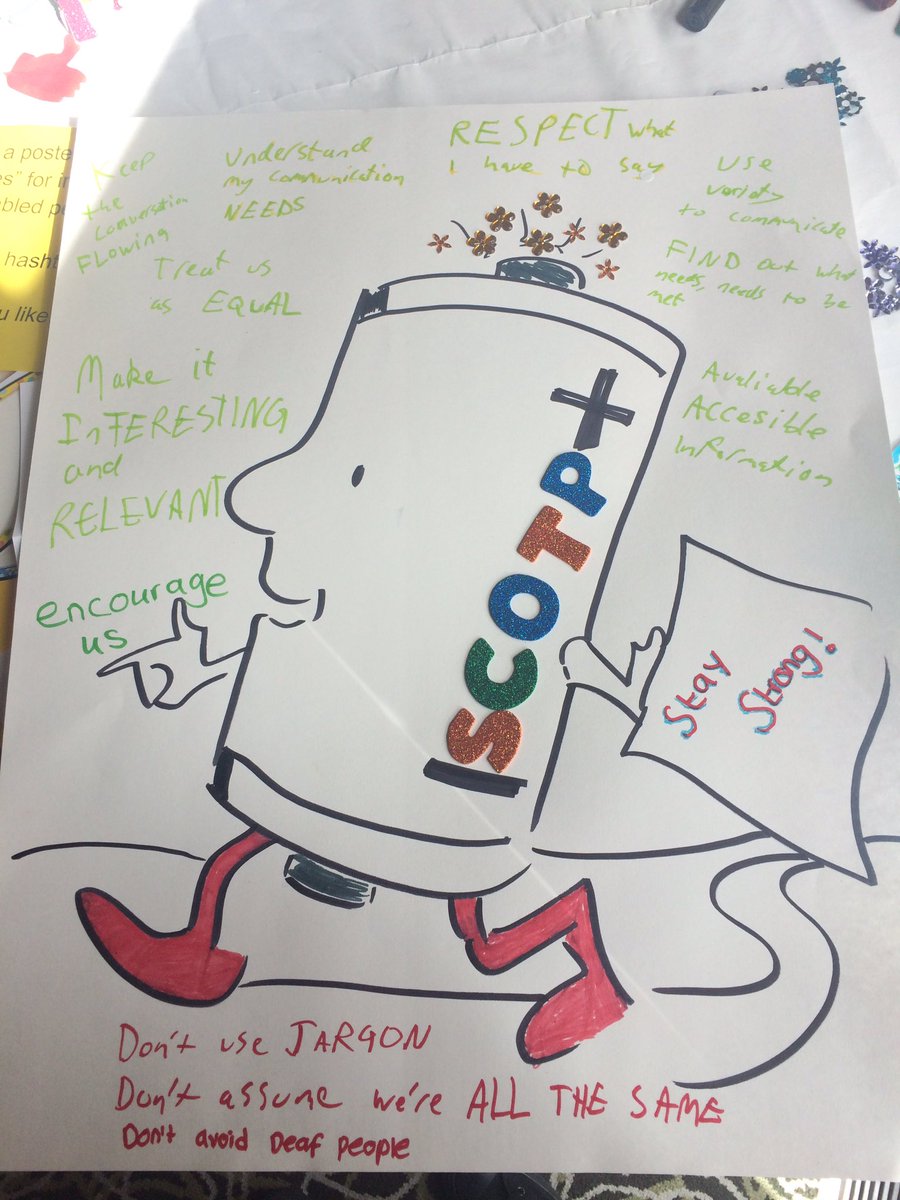 a poste
es" for in
bled pe
hasht
u like
Keep
the
Conversation
FLOWING
Understand
my communication
NEEDS
RESPECT what
I have to say
USE
variety
to communicate
Treat us
as EQUAL
FIND out what
needs, needs to be
met
Make it
INTERESTING
and
RELEVANT
Avaliable
Accesible
Information
encourage
us
+
SCOTP
Stay
Strong!
Don't use JARGON
Don't assume we're ALL THE SAME
Don't avoid Deaf people